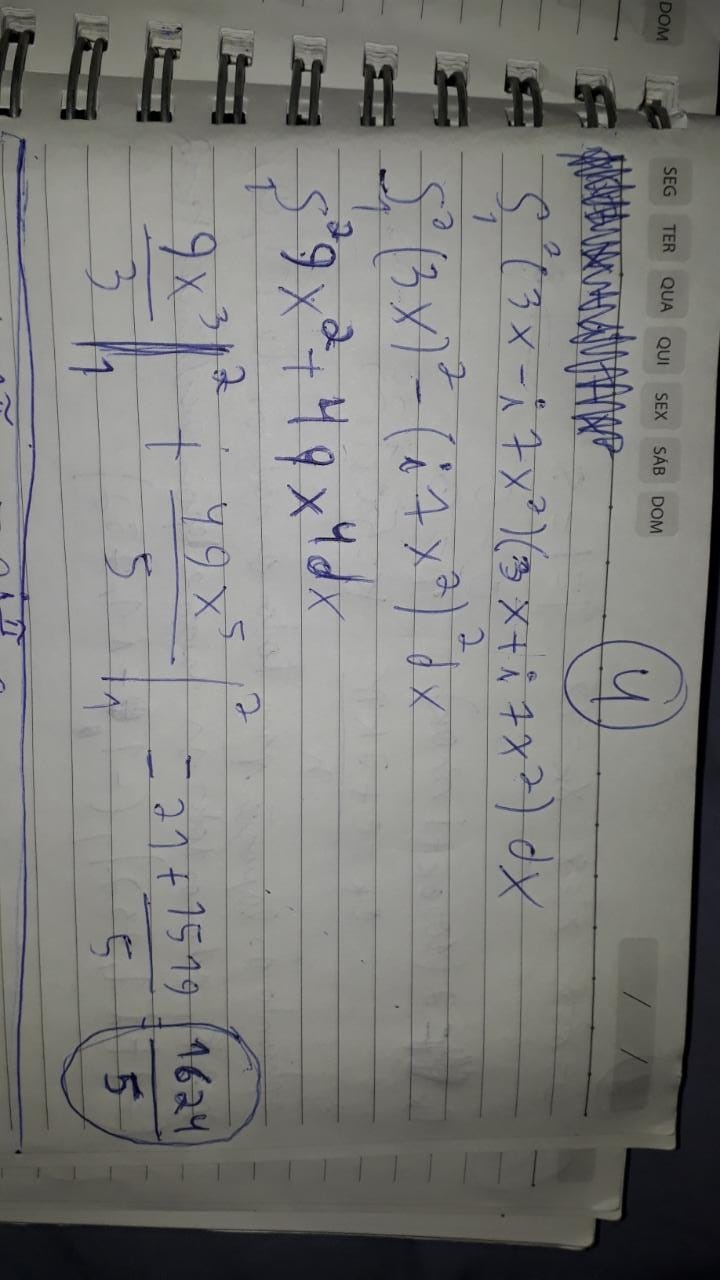 DOM
SEG TER QUA QUI SEX SÁB DOM
/ /
4
∫₁² (3x - i7x²)(3x + i7x²) dx
∫₁² (3x)² - (i7x²)² dx
∫₁² 9x² + 49x⁴ dx
9x³/3 |₁² + 49x⁵/5 |₁² = 21 + 1519/5 = 1624/5